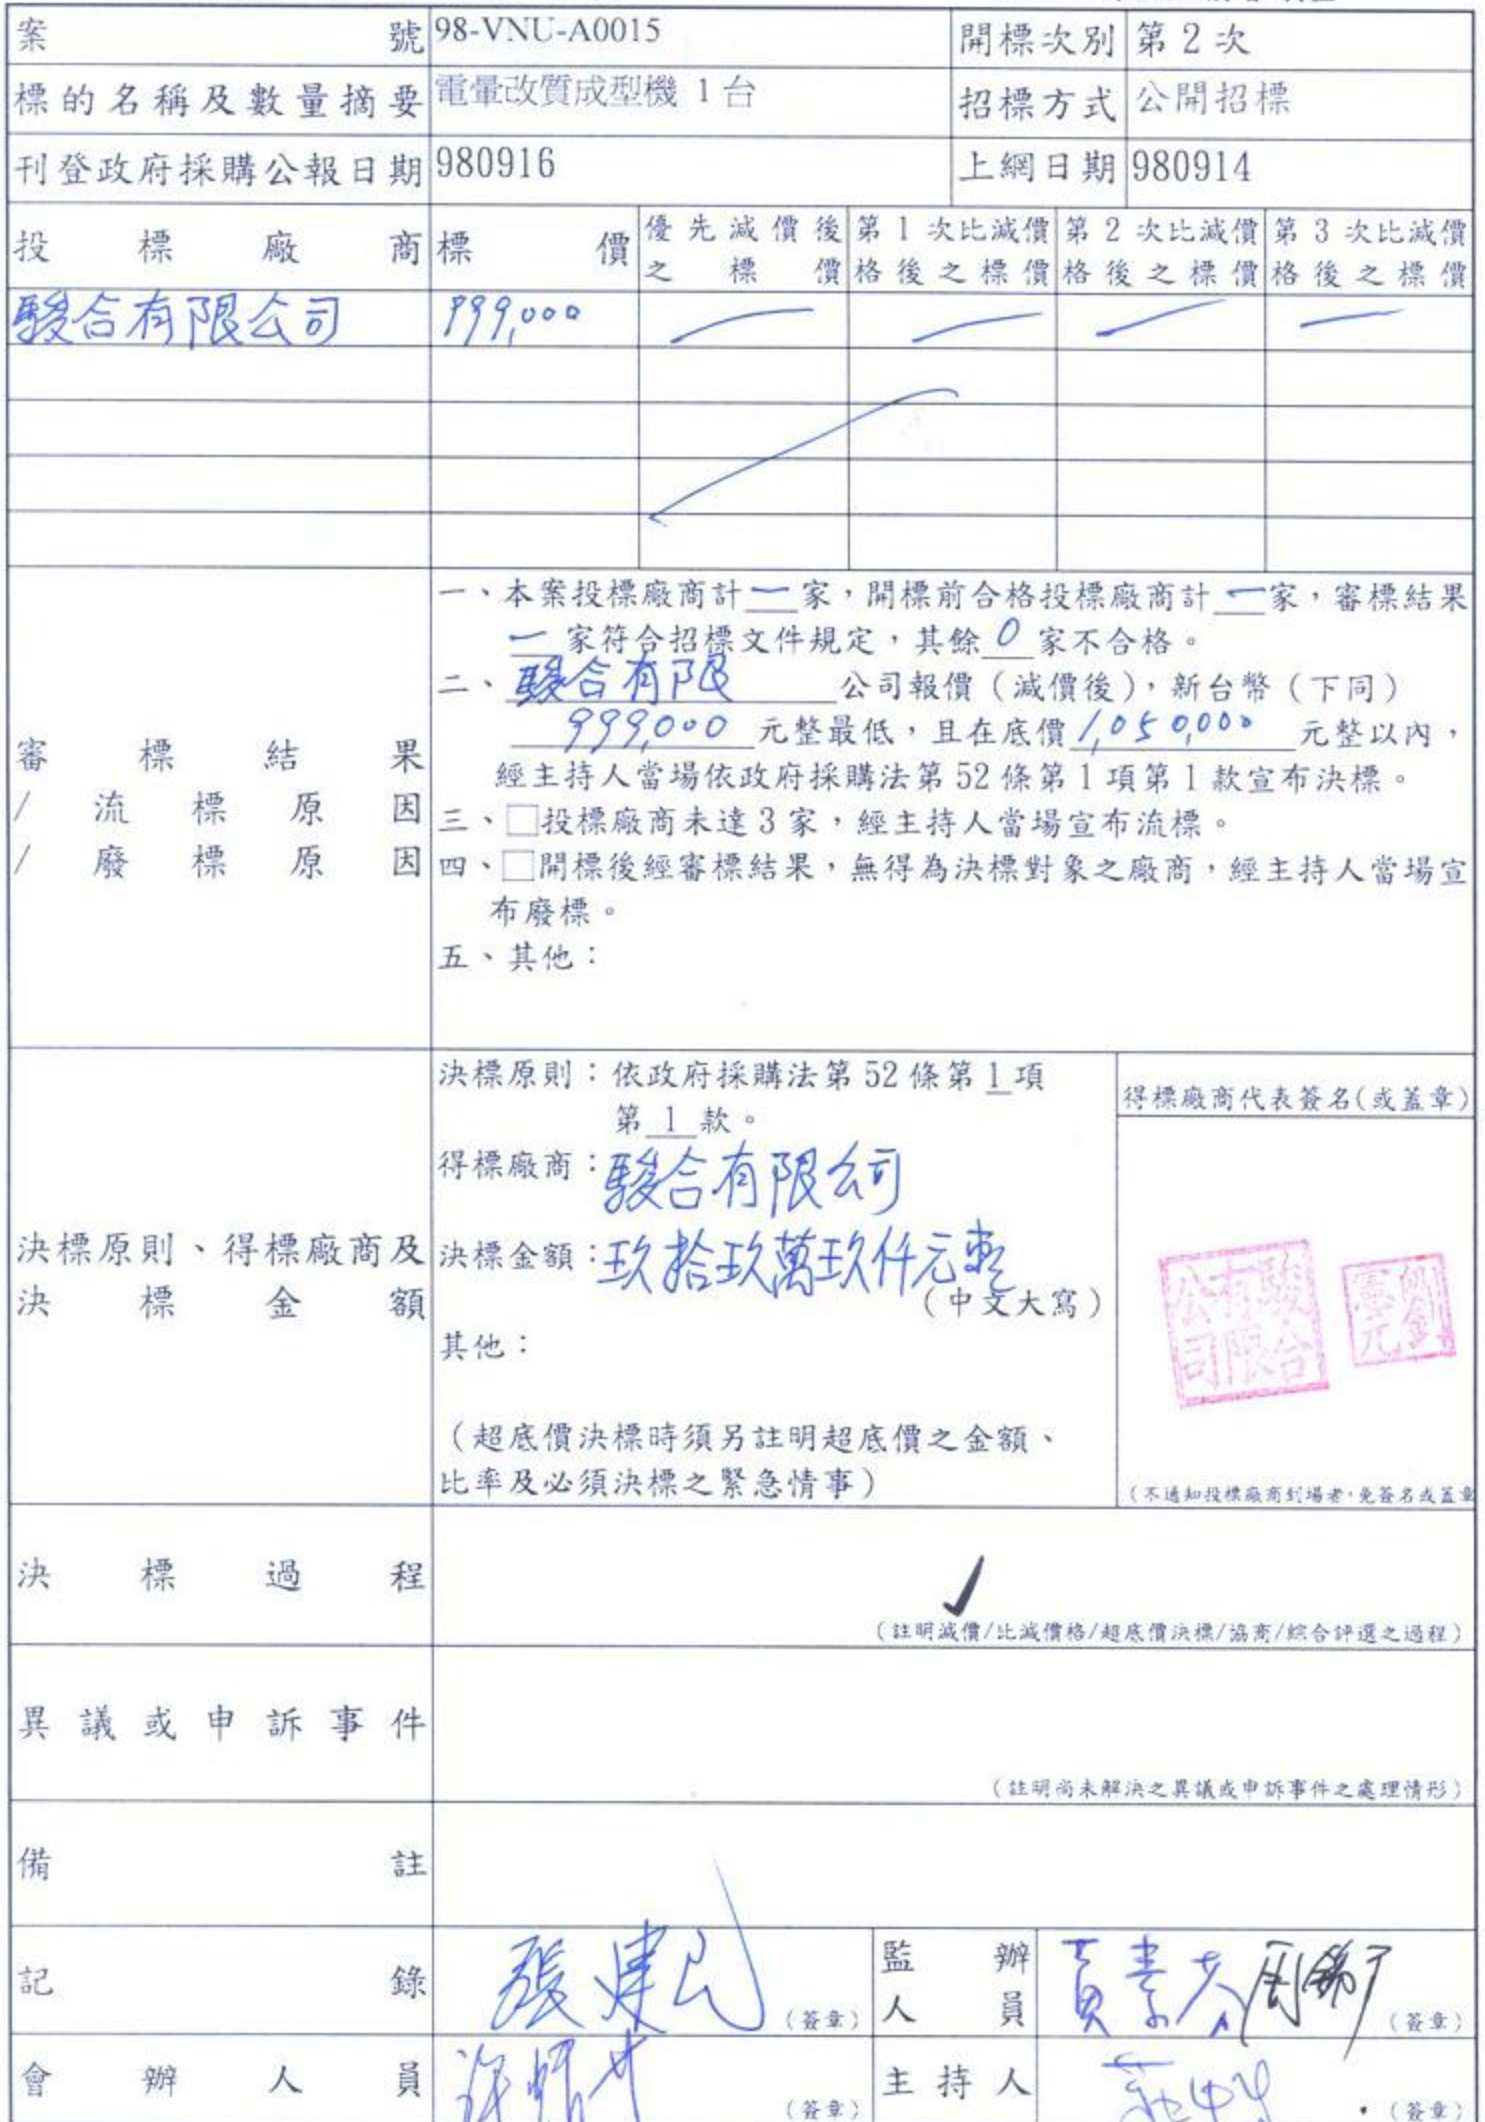 案號 98-VNU-A0015 開標次別 第2次
標的名稱及數量摘要 電暈改質成型機 1台 招標方式 公開招標
刊登政府採購公報日期 980916 上網日期 980914
投標廠商 標價 優先減價後之標價 第1次比減價格後之標價 第2次比減價格後之標價 第3次比減價格後之標價
駿合有限公司 999,000
審標結果
/流標原因
/廢標原因
一、本案投標廠商計一家，開標前合格投標廠商計一家，審標結果
一家符合招標文件規定，其餘0家不合格。
二、駿合有限公司報價（減價後），新台幣（下同）
999,000元整最低，且在底價1,050,000元整以內，
經主持人當場依政府採購法第52條第1項第1款宣布決標。
三、□投標廠商未達3家，經主持人當場宣布流標。
四、□開標後經審標結果，無得為決標對象之廠商，經主持人當場宣
布廢標。
五、其他：
決標原則、得標廠商及
決標金額
決標原則：依政府採購法第52條第1項
第1款。
得標廠商：駿合有限公司
決標金額：玖拾玖萬玖仟元整
（中文大寫）
其他：
（超底價決標時須另註明超底價之金額、
比率及必須決標之緊急情事）
得標廠商代表簽名(或蓋章)
駿合有限公司
（不通知投標廠商到場者，免簽名或蓋章
決標過程
（註明減價/比減價格/超底價決標/協商/綜合評選之過程）
異議或申訴事件
（註明尚未解決之異議或申訴事件之處理情形）
備註
記錄 張建民 （簽章） 監辦人員 （簽章）
會辦人員 （簽章） 主持人 （簽章）